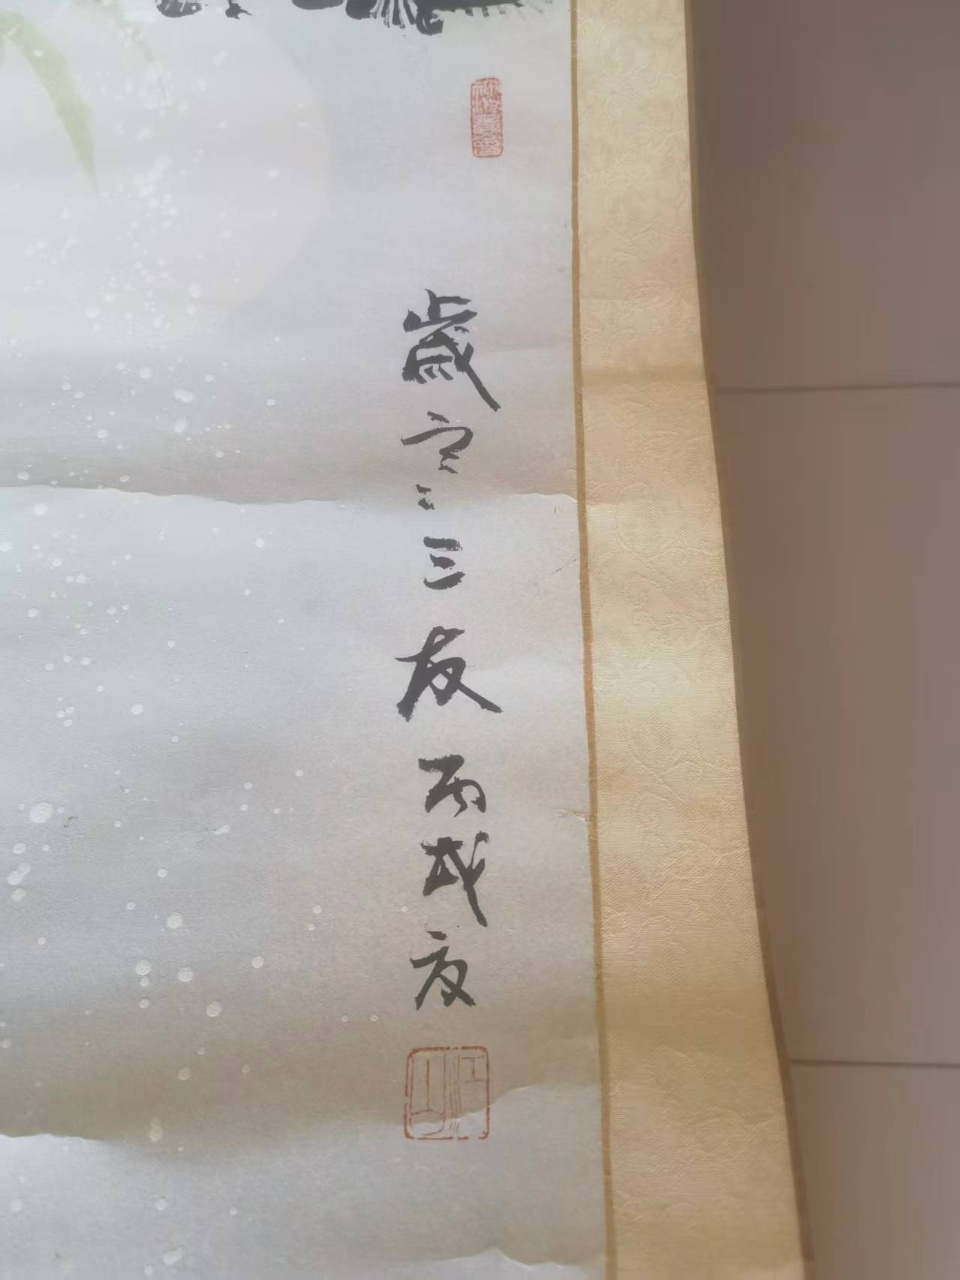 歲寒三友丙戌夏